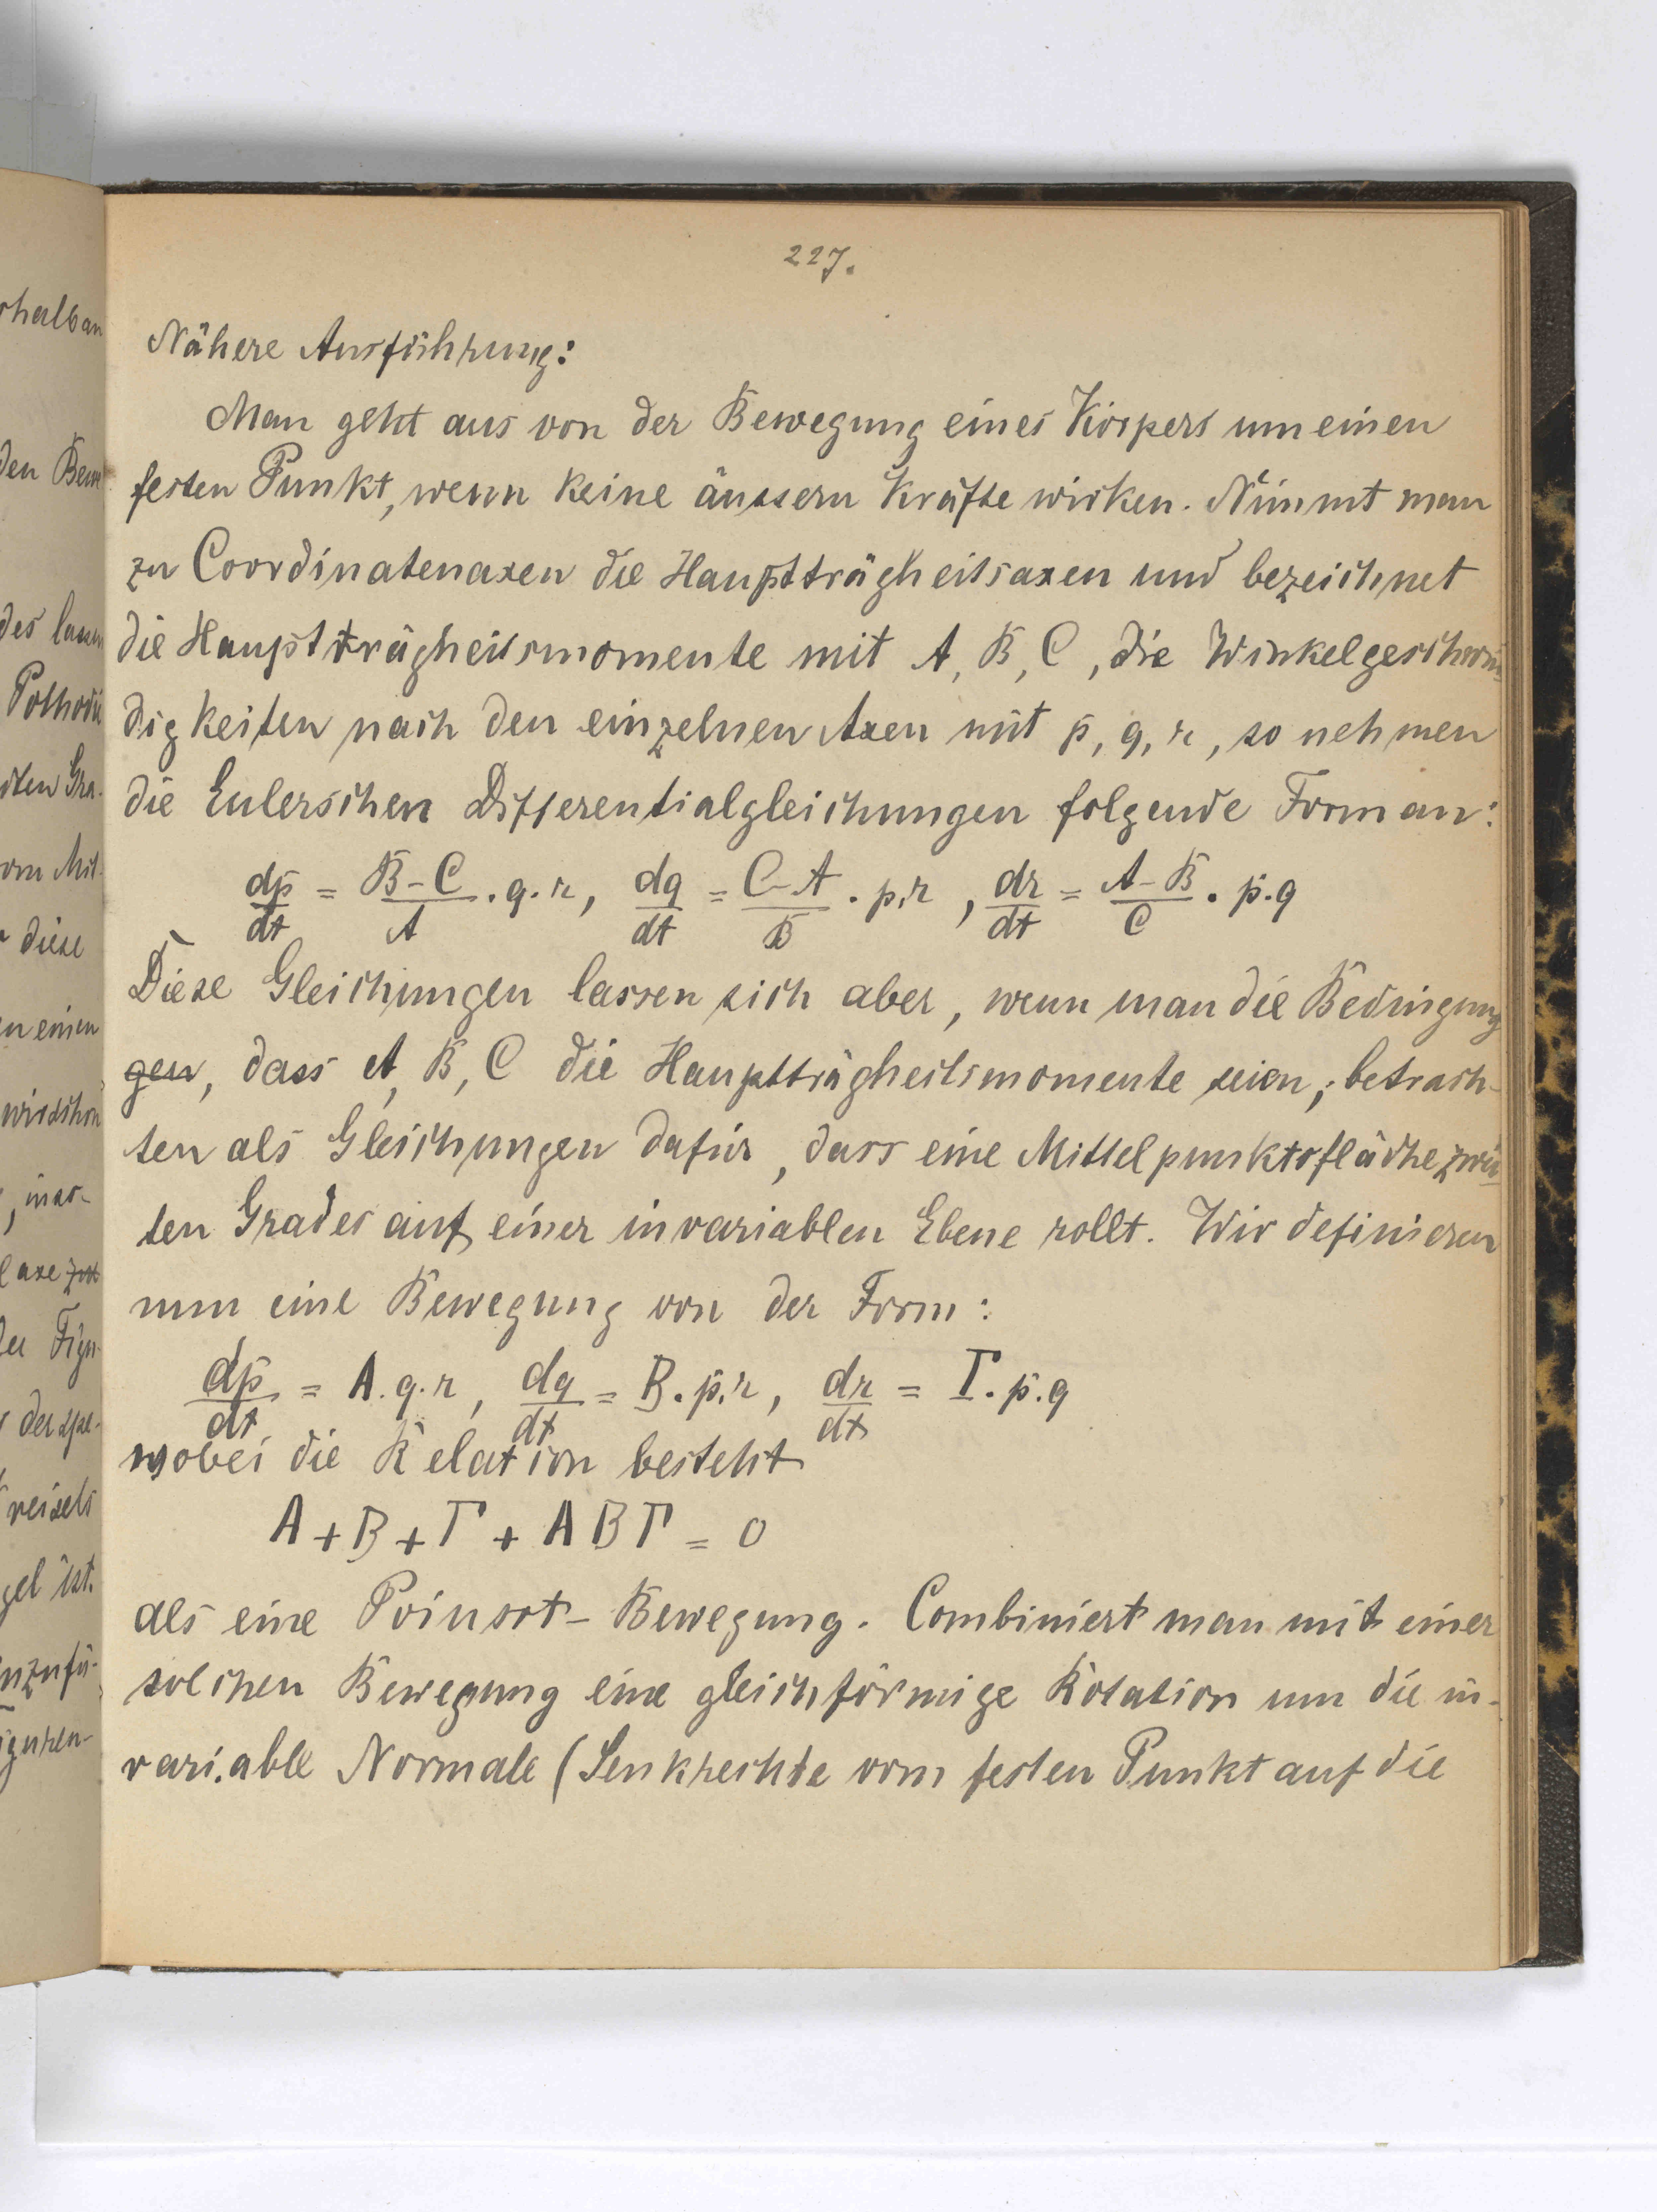 227.
Nähere Ausführung:
Man geht aus von der Bewegung eines Körpers um einen
festen Punkt, wenn keine äussern Kräfte wirken. Nimmt man
zu Coordinatenaxen die Hauptträgheitsaxen und bezeichnet
die Hauptträgheitsmomente mit A, B, C, die Winkelgeschwin-
digkeiten nach den einzelnen Axen mit p, q, r, so nehmen
die Eulerschen Differentialgleichungen folgende Form an:
dp/dt = B-C/A . q. r, dq/dt = C-A/B . p.r , dr/dt = A-B/C . p.q
Diese Gleichungen lassen sich aber, wenn man die Bedingung
gen, dass A, B, C die Hauptträgheitsmomente seien, betrach-
ten als Gleichungen dafür, dass eine Mittelpunktsfläche zwei-
ten Grades auf einer invariablen Ebene rollt. Wir definieren
nun eine Bewegung von der Form:
dp/dt = Α. q. r, dq/dt = Β. p.r, dr/dt = Γ. p.q
wobei die Relation besteht
Α + Β + Γ + Α Β Γ = 0
als eine Poinsot-Bewegung. Combiniert man mit einer
solchen Bewegung eine gleichförmige Rotation um die in-
variable Normale (Senkrechte vom festen Punkt auf die
rhalb an
den Bew
des lassen
Polhodie
iten Gra-
om Mit-
diese
en einen
wir schon
, inso-
laxe
der Figu-
der spe-
reisels
gel ist.
inzufü-
iguren-